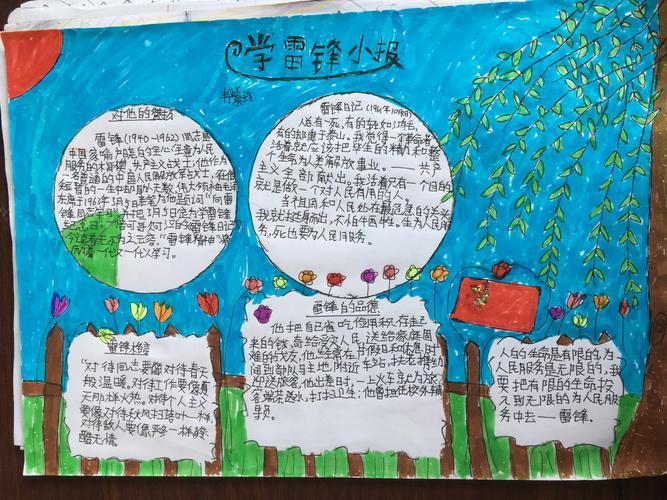 学雷锋小报
对他的赞扬
雷锋(1940-1962)同志是
中国家喻户晓的全心全意为人民
服务的楷模,共产主义战士;他作为
一名普通的中国人民解放军战士,在他
短暂的一生中却助人无数,伟大领袖毛泽
东于1963年3月5日亲笔为他题词"向雷
锋同志学习"并把3月5日定为学雷锋
纪念日;一部可歌可泣的《雷锋日记》
令读者无不为之动容。"雷锋精神"激
励着一代又一代人学习。
雷锋日记(1961年10月
人总有一死,有的轻如
有的却重于泰山。我觉得一个革命者
活着就应该把毕生的精力和整
个生命为人类解放事业。——共产
主义全部献出。我活着只有一个目的
就是做一个对人民有用的人。
当祖国和人民处在最危急的关头
我就挺身而出,不怕牺牲。生为人民服
务,死也要为人民服务。
雷锋
"对待同志要像对待春天
般温暖,对待工作要像夏
天那样火热。对待个人主义
要像对待秋风扫落叶一样
对待敌人要像严冬一样残
酷无情
雷锋的品德
他把自己省吃俭用积存起
来的钱,寄给受灾人民,送给家庭困
难的战友,他经常在节假日和休息时
间到部队驻地附近车站,扶老携幼
迎送旅客,他出差时,一上火车就为旅
客端茶送水,打扫卫生;他曾担任校外辅
导员。
人的生命是有限的,为
人民服务是无限的,我
要把有限的生命投
入到无限的为人民服
务中去——雷锋。